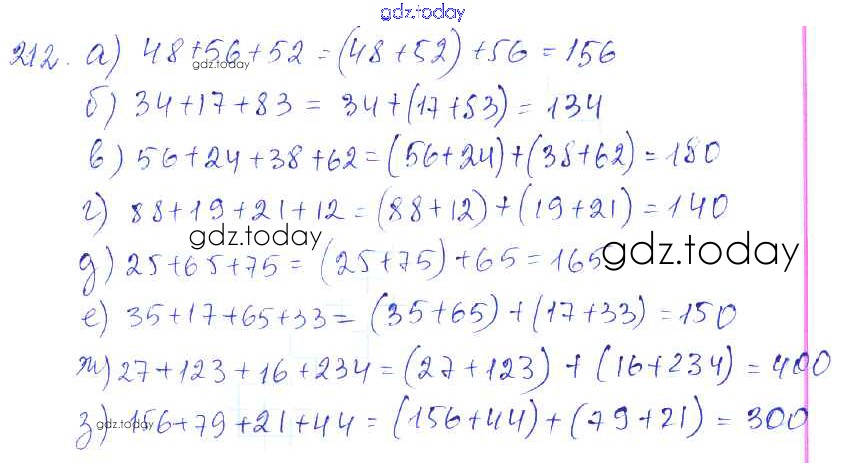 gdz.today
212. а) 48+56+52=(48+52)+56=156
gdz.today
б) 34+17+83=34+(17+83)=134
в) 56+24+38+62=(56+24)+(38+62)=180
г) 88+19+21+12=(88+12)+(19+21)=140
gdz.today
gdz.today
д) 25+65+75=(25+75)+65=165
е) 35+17+65+33=(35+65)+(17+33)=150
ж) 27+123+16+234=(27+123)+(16+234)=400
з) 156+79+21+44=(156+44)+(79+21)=300
gdz.today